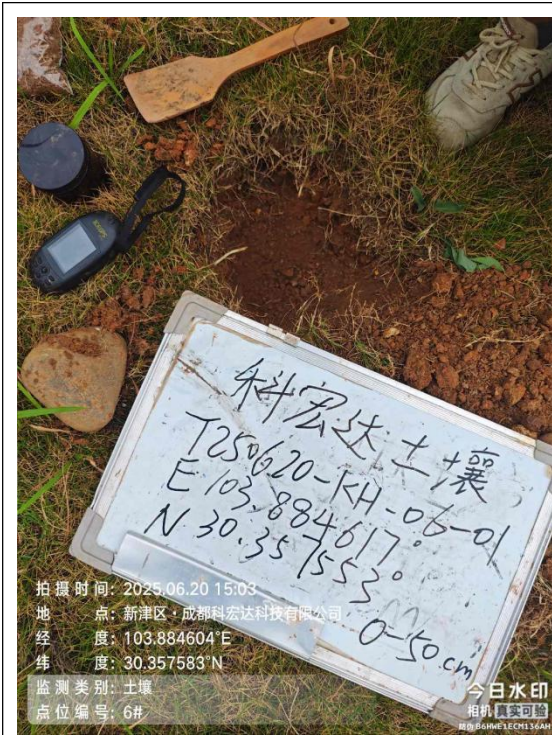 科宏达土壤
T250620-KH-06-01
E 103.884617°
N 30.357553°
0-50cm
拍摄时间：2025.06.20 15:03
地　点：新津区·成都科宏达科技有限公司
经　度：103.884604°E
纬　度：30.357583°N
监测类别：土壤
点位编号：6#
今日水印
相机 真实可验
防伪 B6HWE1ECM136AH